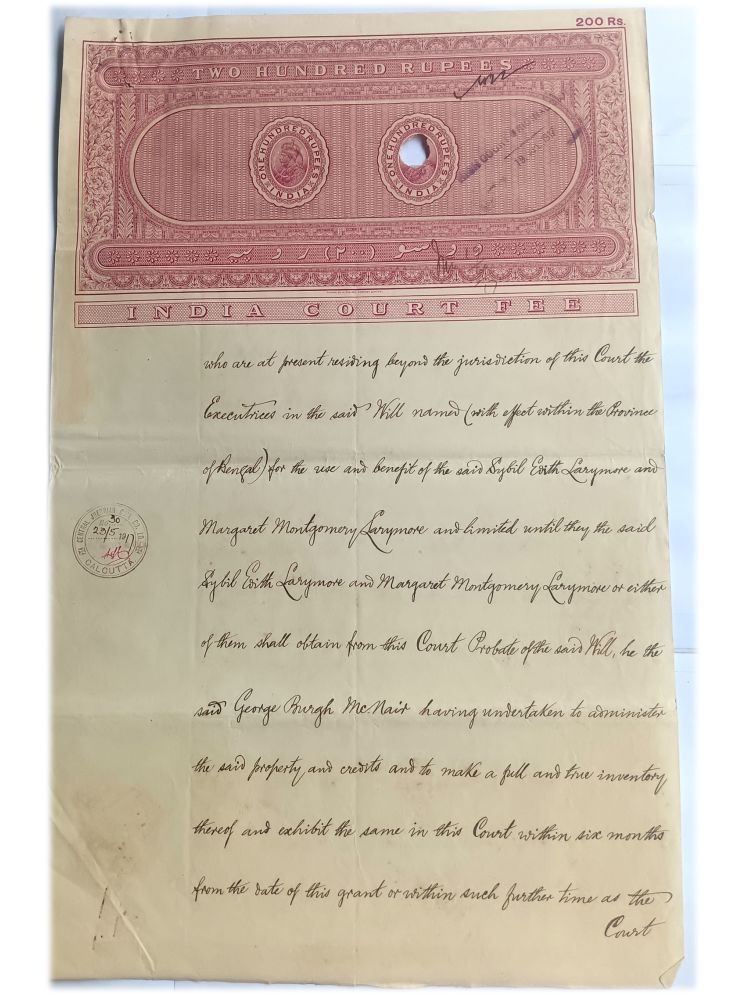 200 Rs.
TWO HUNDRED RUPEES
ONE HUNDRED RUPEES
INDIA
ONE HUNDRED RUPEES
INDIA
دو سو (٢٠٠) روپیہ
INDIA COURT FEE
who are at present residing beyond the jurisdiction of this Court the
Executrices in the said Will named (with effect within the Province
of Bengal) for the use and benefit of the said Sybil Edith Larymore and
Margaret Montgomery Larymore and limited until they the said
CALCUTTA
Sybil Edith Larymore and Margaret Montgomery Larymore or either
of them shall obtain from this Court Probate of the said Will, he the
said George Burgh McNair having undertaken to administer
the said property and credits and to make a full and true inventory
thereof and exhibit the same in this Court within six months
from the date of this grant or within such further time as the
Court